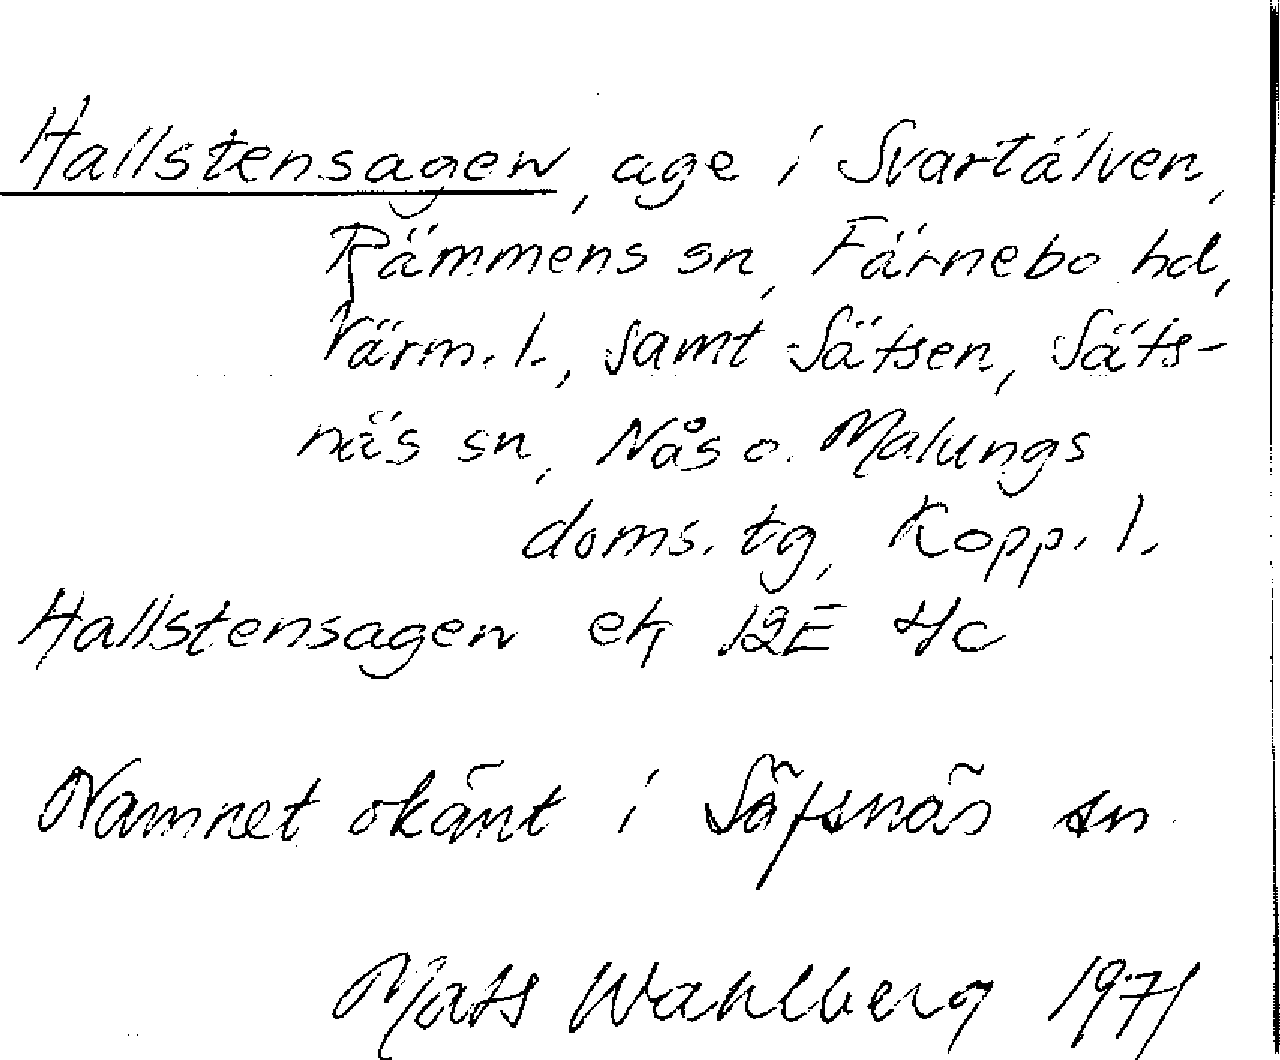 Hallstensagen, age i Svartälven,
Rämmens sn, Färnebo hd,
Värm. l., samt Säfsen, Säfs-
näs sn, Nås o. Malungs
doms. tg, Kopp. l.
Hallstensagen ek 12E 4c
Namnet okänt i Säfsnäs sn
Mats Wahlberg 1971